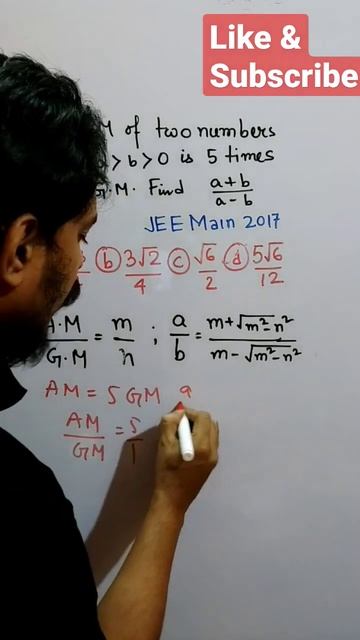 Like &
Subscribe
M of two numbers
a > b > 0 is 5 times
G.M. Find a+b / a-b
JEE Main 2017
(b) 3√2/4 (c) √6/2 (d) 5√6/12
A.M/G.M = m/n ; a/b = m+√m²-n² / m-√m²-n²
AM = 5 GM a
AM/GM = 5/1